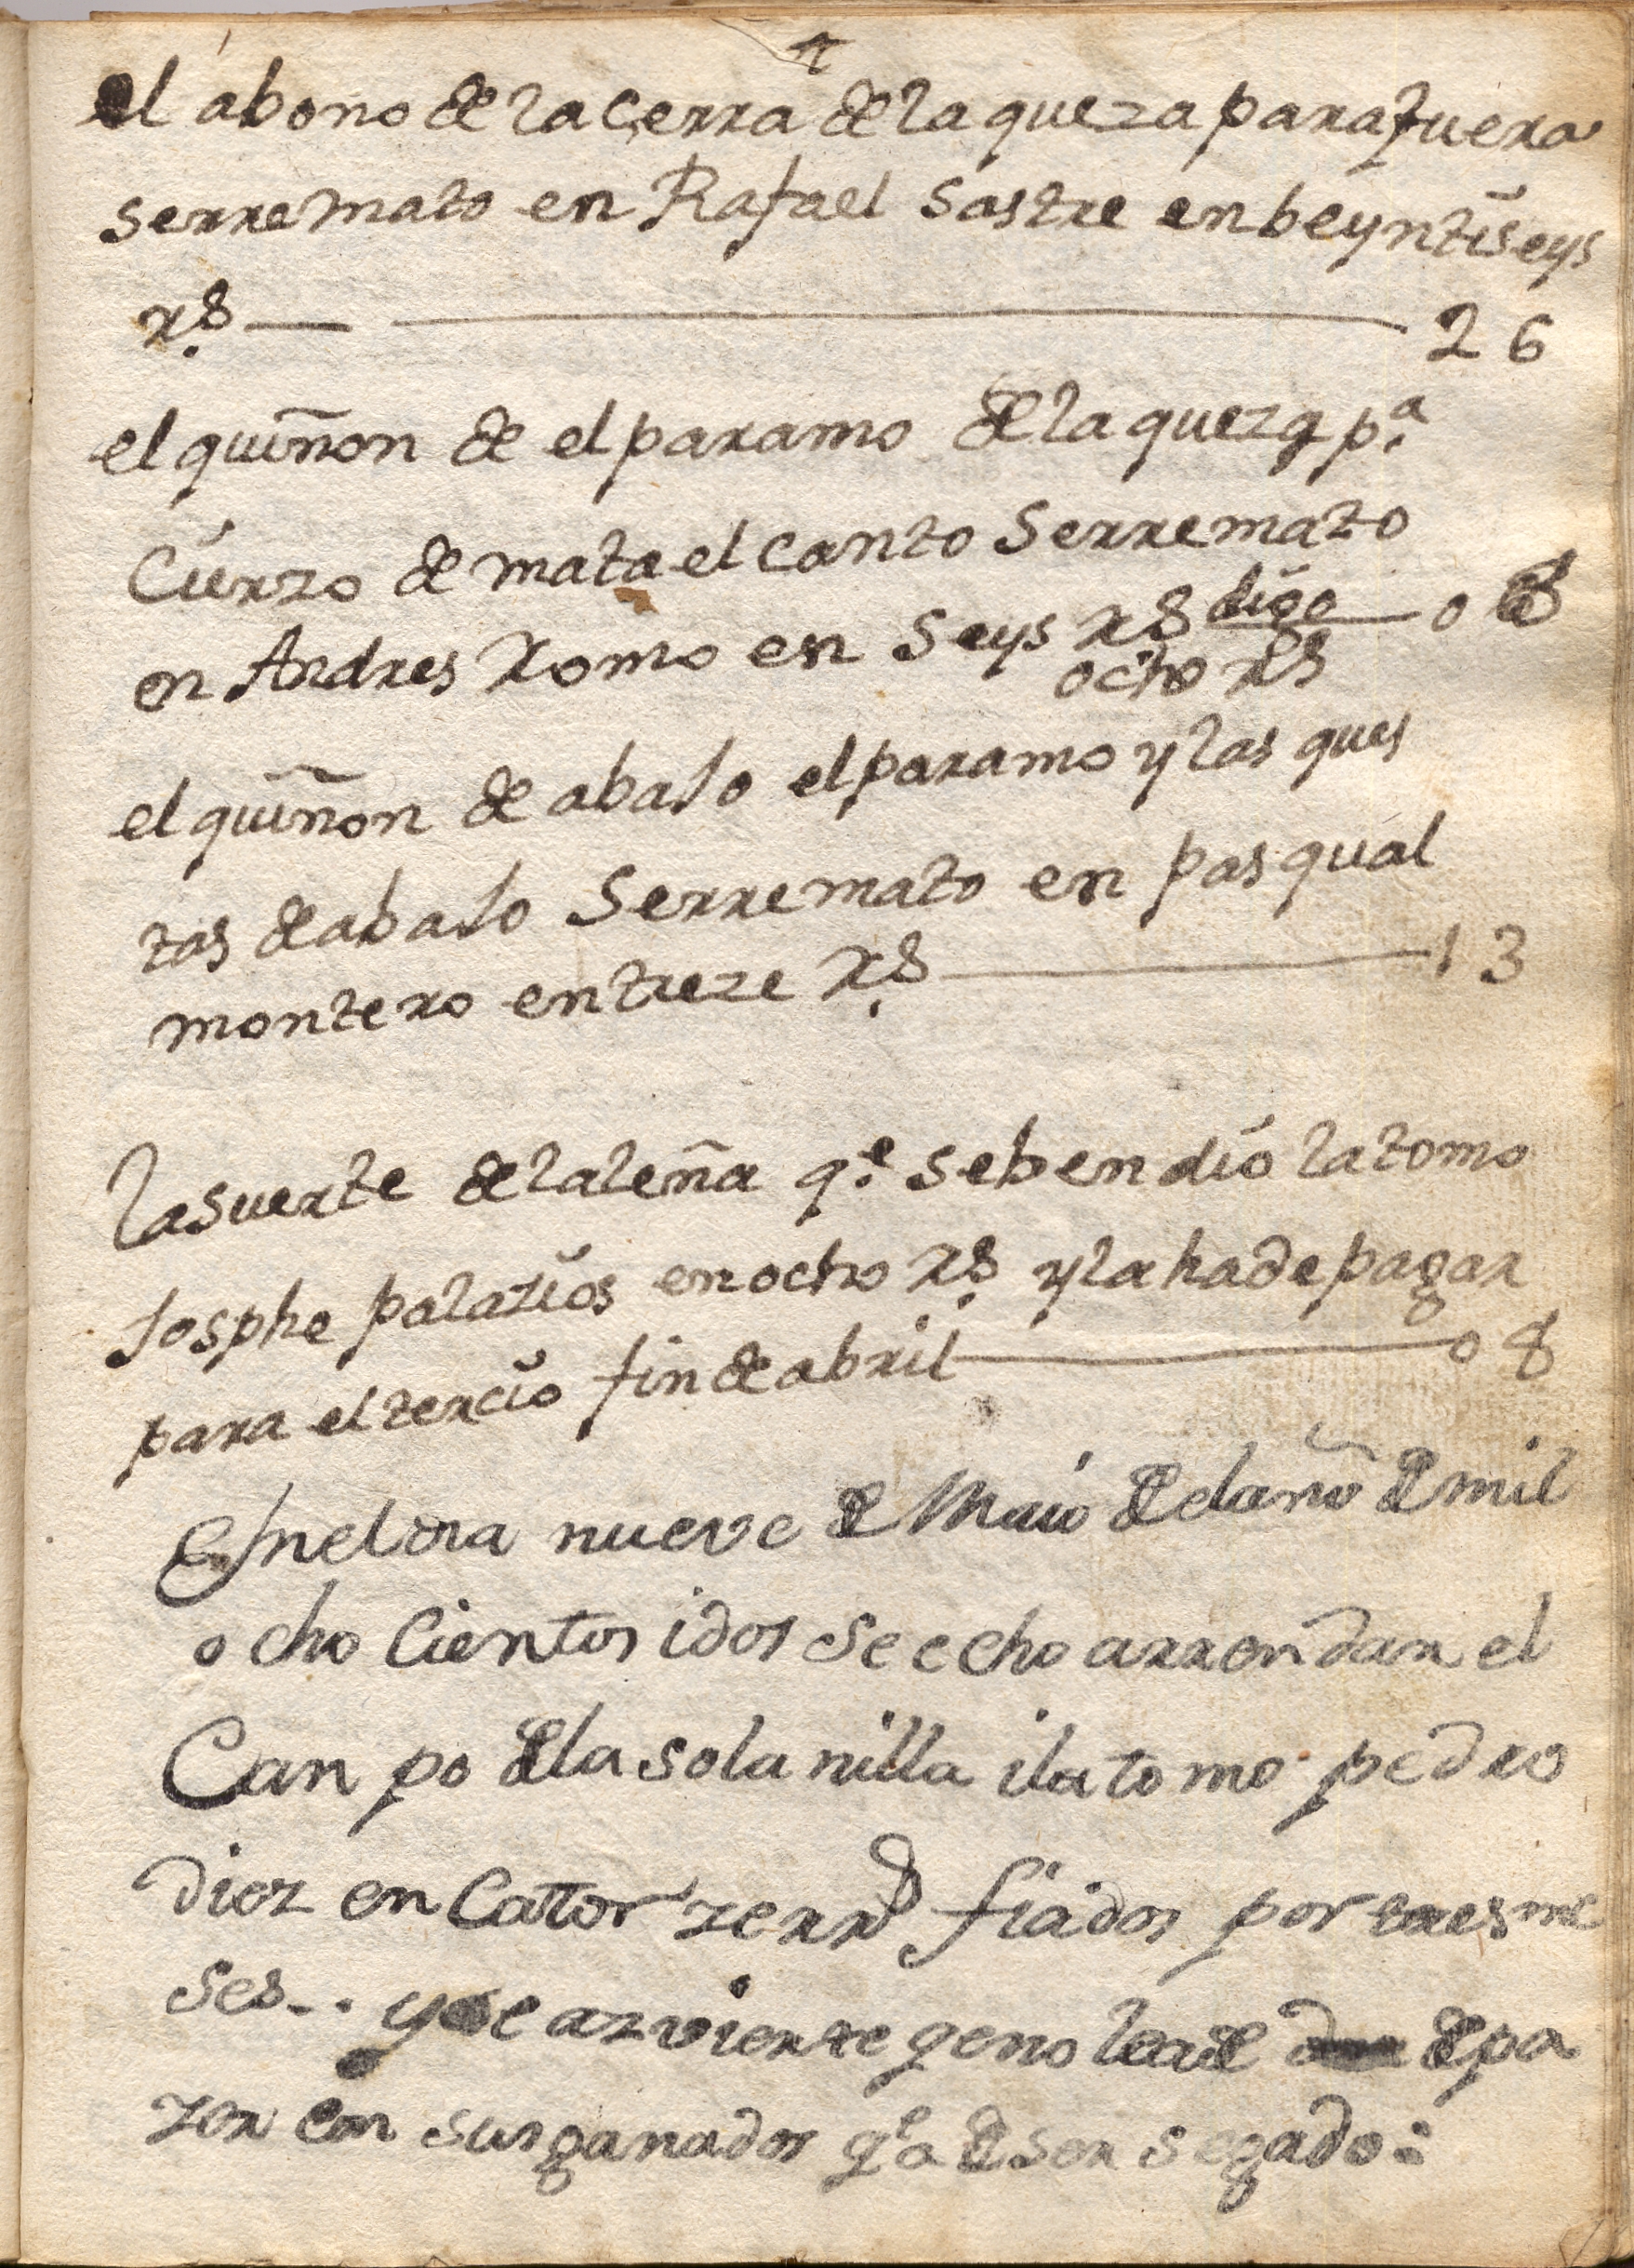 el abono de la cerra de la queza para fuera
se rremato en Rafael Sastre en beyntiseys
rs. 26
el quiñon de el paramo de la queza pa.
Cierzo de mata el canto Se rremato
en Andres Romo en Seys rs digo 08
ocho rs
el quiñon de abajo el paramo y las ques
tas de abajo Se rremato en pasqual
montero en treze rs. 13
la suerte de la leña qe. se bendió la tomo
Josphe palazios en ocho rs. y la ha de pagar
para el tercio fin de abril 08
En el dia nueve de Maio del año de mil
ocho Cientos i dos se echo arrendar el
Canpo de la solanilla i la tomo pedro
diez en Cator ze rrs fiados por tres me
ses.. y se azvierte qe no lea de de pa
zer con sus ganados qe a de ser segado: